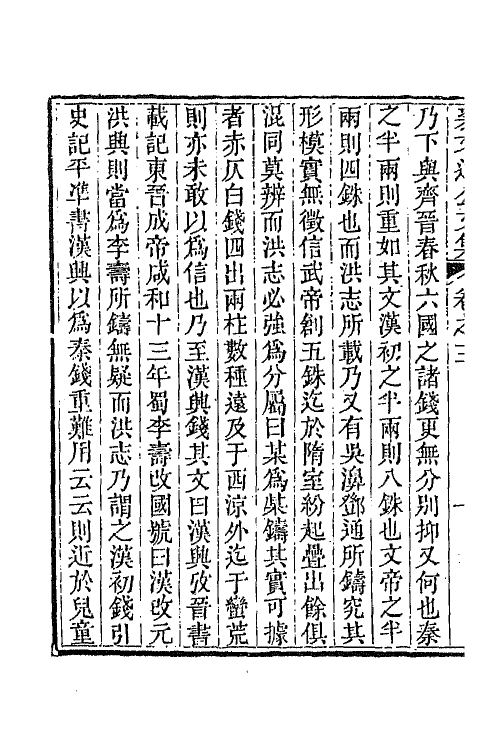 乃下與齊晉春秋六國之諸錢更無分別抑又何也秦
之半兩則重如其文漢初之半兩則八銖也文帝之半
兩則四銖也而洪志所載乃又有吳濞鄧通所鑄究其
形模實無徵信武帝創五銖迄於隋室紛起疊出餘俱
混同莫辨而洪志必強為分屬曰某為某鑄其實可據
者赤仄白錢四出兩柱數種遠及于西涼外迄于蠻荒
則亦未敢以為信也乃至漢興錢其文曰漢興攷晉書
載記東晉成帝咸和十三年蜀李壽改國號曰漢改元
洪興則當為李壽所鑄無疑而洪志乃謂之漢初錢引
史記平準書漢興以為秦錢重難用云云則近於兒童